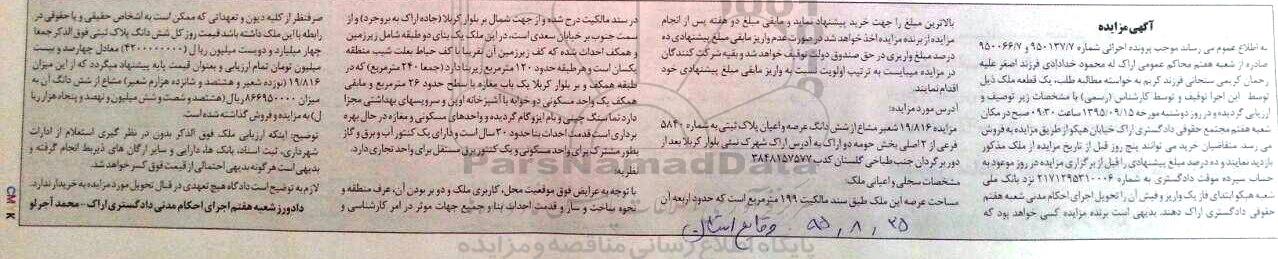 آگهی مزایده
به اطلاع عموم می رساند بموجب پرونده اجرائی شماره ۹۵۰۱۳۷/۷ و ۹۵۰۰۶۶/۷
صادره از شعبه هفتم محاکم عمومی اراک له محمود خدادادی فرزند اصغر علیه
رحمان کریمی سنجانی فرزند کریم به خواسته مطالبه طلب، یک قطعه ملک ذیل
توسط این اجرا توقیف و توسط کارشناس (رسمی) با مشخصات زیر توصیف و
ارزیابی گردیده و در روز دوشنبه مورخه ۱۳۹۵/۰۹/۱۵ ساعت ۰۹:۳۰ صبح در مکان
شعبه هفتم مجتمع حقوقی دادگستری اراک خیابان هپکو از طریق مزایده به فروش
می رسد. متقاضیان خرید می توانند پنج روز قبل از تاریخ مزایده از ملک مذکور
بازدید نمایند و ده درصد مبلغ پیشنهادی را قبل از برگزاری مزایده در روز موعود به
حساب سپرده موقت دادگستری به شماره ۲۱۷۱۲۹۵۳۱۰۰۰۶ نزد بانک ملی
شعبه هپکو ابتدای فاز یک واریز و فیش آن را تحویل اجرای احکام مدنی شعبه هفتم
حقوقی دادگستری اراک دهند. بدیهی است برنده مزایده کسی خواهد بود که
بالاترین مبلغ را جهت خرید پیشنهاد نماید و مابقی مبلغ دو هفته پس از انجام
مزایده از برنده مزایده اخذ خواهد شد در صورت عدم واریز مابقی مبلغ پیشنهادی ده
درصد مبلغ واریزی در حق صندوق دولت توقیف خواهد شد و بقیه شرکت کنندگان
در مزایده میبایست به ترتیب اولویت نسبت به واریز مابقی مبلغ پیشنهادی خود
اقدام نمایند.
آدرس مورد مزایده:
مزایده ۱۹/۸۱۶ شعیر مشاع از شش دانگ عرصه و اعیان پلاک ثبتی به شماره ۵۸۴۰
فرعی از ۲ اصلی بخش حومه دو اراک به آدرس اراک شهرک نبتی بلوار کربلا بعد از
دور برگردان جنب طباخی گلستان کدپ ۳۸۴۸۱۵۷۵۷۷
مشخصات سجلی و اعیانی ملک:
مساحت عرصه این ملک طبق سند مالکیت ۱۹۹ مترمربع است که حدود اربعه آن
در سند مالکیت درج شده و از جهت شمال بر بلوار کربلا (جاده اراک به بروجرد) و از
سمت جنوب بر خیابان سعدی است. در این ملک یک بنای دو طبقه شامل زیرزمین
و همکف احداث شده که کف زیرزمین آن تقریبا با کف حیاط بعلت شیب منطقه
یکسان است و هر طبقه حدود ۱۲۰ مترمربع زیربنا دارد (جمعا ۲۴۰ مترمربع) که در
طبقه همکف و بر بلوار کربلا یک باب مغازه با سطح حدود ۲۶ مترمربع و مابقی
همکف یک واحد مسکونی دو خوابه با آشپزخانه اوپن و سرویسهای بهداشتی مجزا
دارد نما سنگ چینی و بام ایزوگام گردیده و واحدهای مسکونی و مغازه در حال بهره
برداری است قدمت احداث بنا حدود ۲۰ سال است و دارای یک کنتور آب و برق و گاز
بطور مشترک برای واحد مسکونی و یک کنتور برق مستقل برای واحد تجاری دارد.
نظریه:
با توجه به عرایض فوق موقعیت محل، کاربری ملک و دو بر بودن آن، عرف منطقه و
نحوه ساخت و ساز و قدمت احداث بنا و جمیع جهات موثر در امر کارشناسی و
صرفنظر از کلیه دیون و تعهداتی که ممکن است به اشخاص حقیقی و یا حقوقی در
رابطه با این ملک داشته باشد قیمت روز کل شش دانگ پلاک ثبتی فوق الذکر جمعا
چهار میلیارد و دویست میلیون ریال (۴۲۰۰۰۰۰۰۰۰) معادل چهارصد و بیست
میلیون تومان تمام ارزیابی و بعنوان قیمت پایه پیشنهاد میگردد که از این میزان
(۱۹/۸۱۶ (نوزده شعیر و هشتصد و شانزده هزارم شعیر) مشاع از شش دانگ آن به
میزان ۸۶۶۹۵۰۰۰۰ ریال (هشتصد و شصت و شش میلیون و نهصد و پنجاه هزار ریا
ل) به مزایده و فروش گذاشته شده است.
توضیح: اینکه ارزیابی ملک فوق الذکر بدون در نظر گیری استعلام از ادارات
شهرداری، ثبت اسناد، بانک ها، دارایی و سایر ارگان های ذیربط انجام گرفته و
بدیهی است هر گونه بدیهی احتمالی از قیمت فوق کسر خواهد شد.
لازم به توضیح است دادگاه هیچ تعهدی در قبال تحویل مورد مزایده به خریدار ندارد.
دادورز شعبه هفتم اجرای احکام مدنی دادگستری اراک - محمد آجرلو
CM K
ParsNamadData
پایگاه اطلاع رسانی مناقصه و مزایده
۹۵،۸،۲۵